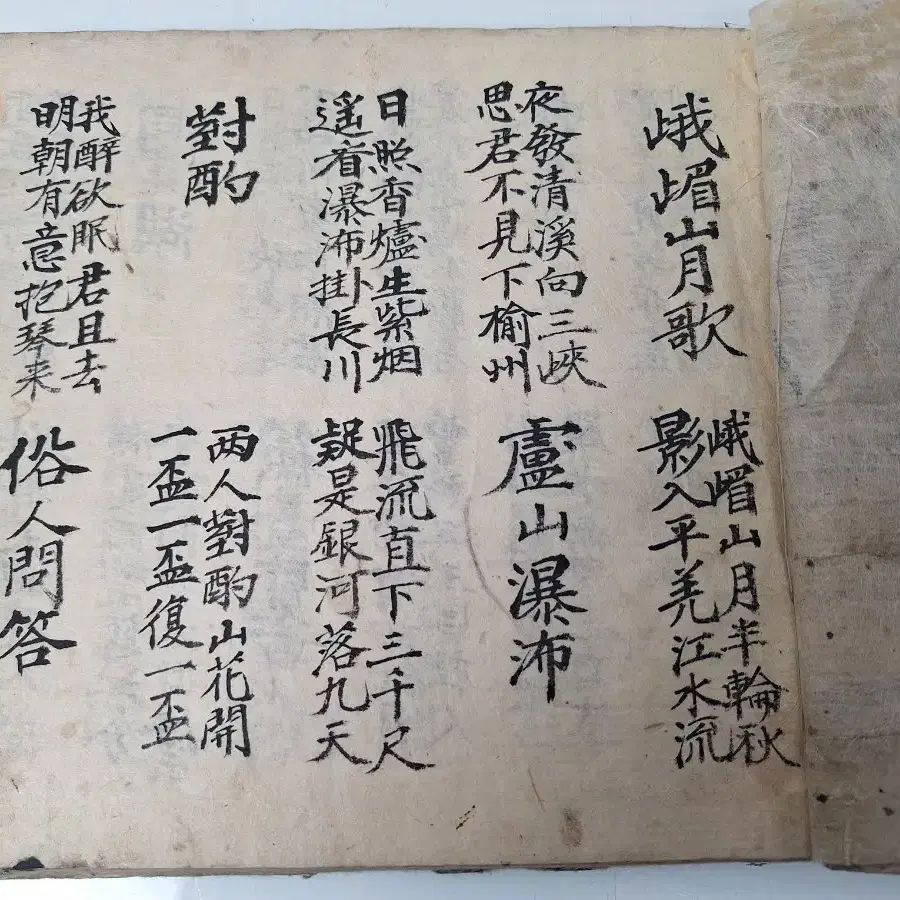 峨嵋山月歌
峨嵋山月半輪秋
影入平羌江水流
夜發清溪向三峽
思君不見下榆州
盧山瀑㳍
日照香爐生紫烟
遙看瀑㳍掛長川
飛流直下三千尺
疑是銀河落九天
對酌
両人對酌山花開
一盃一盃復一盃
我醉欲眠君且去
明朝有意抱琴来
俗人問答